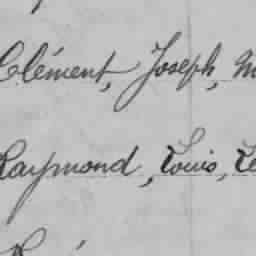 Clément, Joseph,
Raymond, Louis,